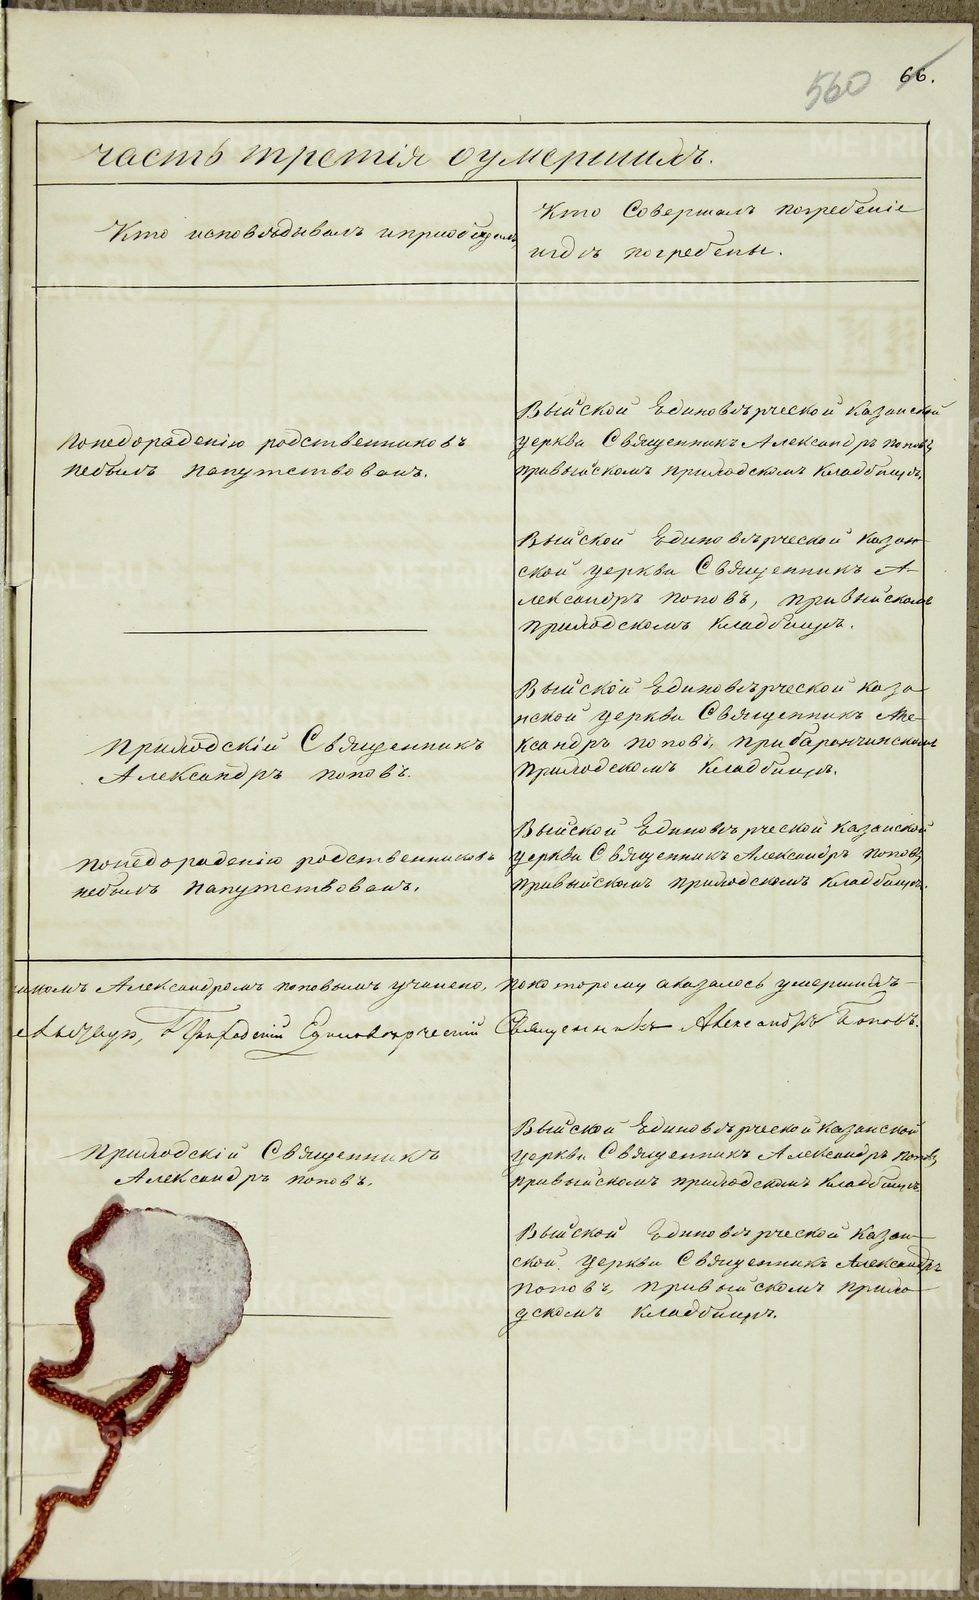 560 66.
часть третія оумершихъ.
Кто исповѣдывалъ ипріобщалъ
Кто Совершалъ погребеніе
игдѣ погребены.
Понедораденію родственниковъ
небылъ напутствованъ.
Выйской Единовѣрческой Казанской
церкви Священникъ Александръ поповъ,
привыйскомъ приходскомъ Кладбищѣ.
Выйской Единовѣрческой Казан-
ской церкви Священникъ А-
лександръ поповъ, привыйскомъ
приходскомъ Кладбищѣ.
Приходскій Священникъ
Александръ поповъ.
Выйской Единовѣрческой Каза-
нской церкви Священникъ Але-
ксандръ поповъ, прибаранчинскомъ
приходскомъ Кладбищѣ.
понедораденію родственниковъ
небылъ напутствованъ.
Выйской Единовѣрческой Казанской
церкви Священникъ Александръ поповъ,
привыйскомъ приходскомъ Кладбищѣ.
Александромъ поповымъ учинено, покоторому оказалось умершихъ
Приходскій Единовѣрческій Священникъ Александръ Поповъ.
Приходскій Священникъ
Александръ поповъ.
Выйской Единовѣрческой Казанской
церкви Священникъ Александръ поповъ,
привыйскомъ приходскомъ Кладбищѣ
Выйской Единовѣрческой Казан-
ской церкви Священникъ Александръ
поповъ, привыйскомъ прихо-
дскомъ Кладбищѣ.
METRIKI.GASO-URAL.RU